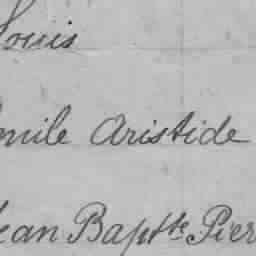 Louis
Emile Aristide
Jean Baptte Pier